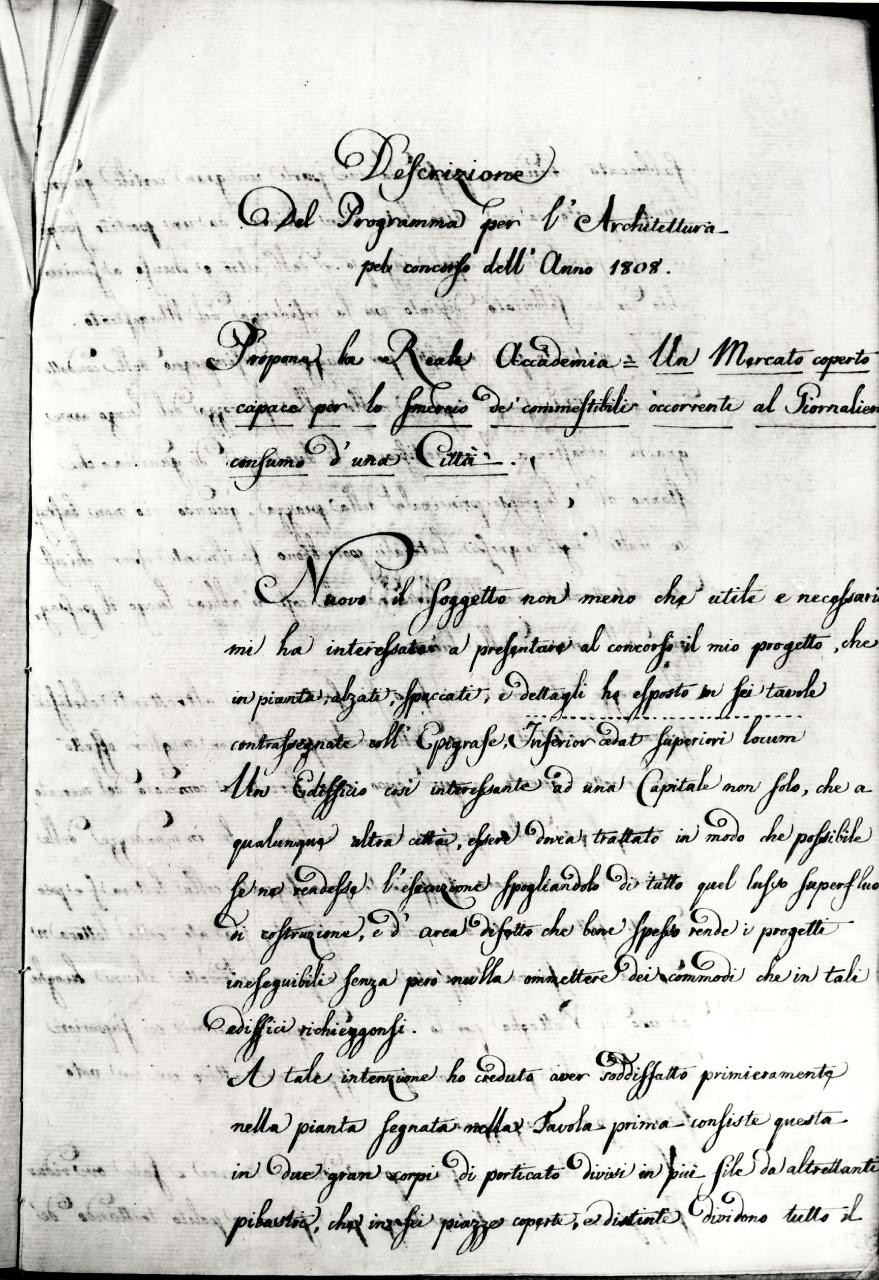 Descrizione
Del Programma per l'Architettura
pel concorso dell'Anno 1808.
Propone la Reale Accademia = Un Mercato coperto
capace per lo smercio de' commestibili occorrenti al Giornalier
consumo d'una Città.
Nuovo il soggetto non meno che utile e necessari
mi ha interessato a presentare al concorso il mio progetto, che
in pianta, alzati, spaccati, e dettagli ho esposto in sei tavole
contrassegnate coll'Epigrafe, Inferior cedat superiori locum
Un Edifficio così interessante ad una Capitale non solo, che a
qualunque altra città, essere dovea trattato in modo che possibile
se ne rendesse l'esecuzione spogliandolo di tutto quel lusso superfluo
di costruzione, e d'area difetto che bene spesso rende i progetti
ineseguibili senza però nulla ommettere dei commodi che in tali
ediffici richieggonsi.
A tale intenzione ho creduto aver soddisfatto primieramente
nella pianta segnata nella Tavola prima consiste questa
in due gran corpi di porticato divisi in più file da altrettanti
pilastri, che in sei piazze coperte, e distinte dividono tutto il